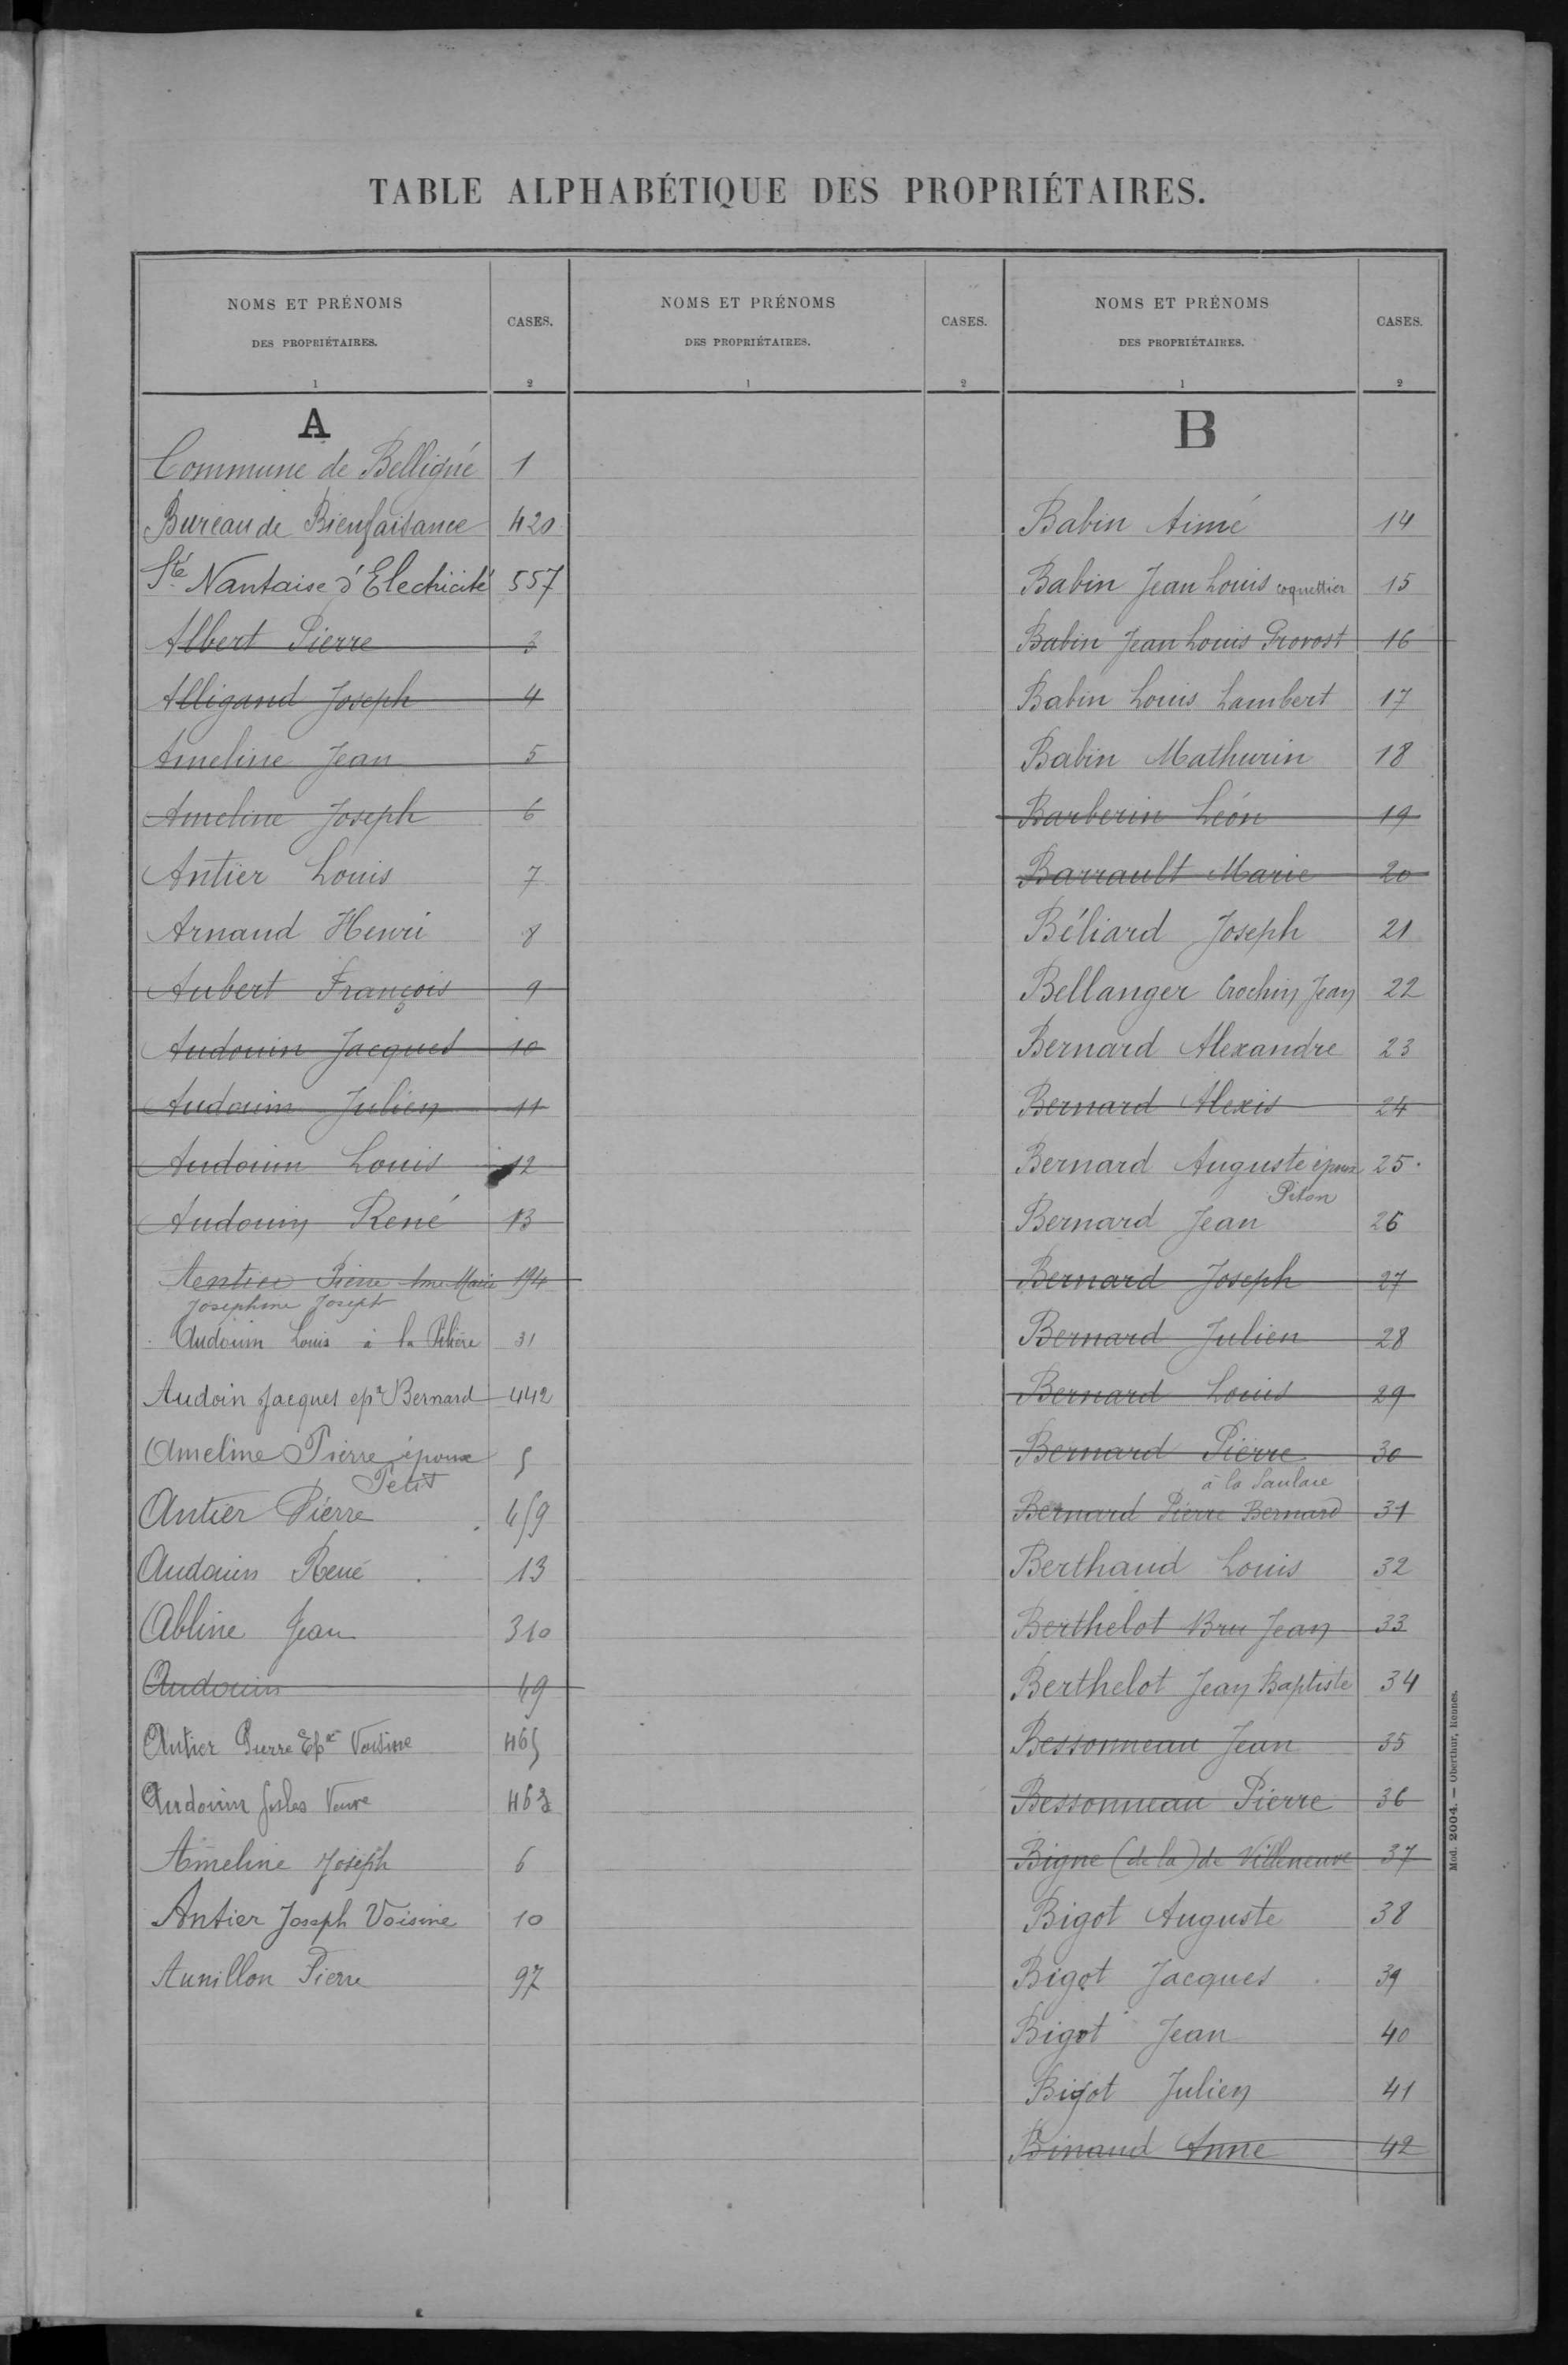 TABLE ALPHABÉTIQUE DES PROPRIÉTAIRES.
NOMS ET PRÉNOMS DES PROPRIÉTAIRES. CASES.
1 2
A
Commune de Belligné 1
Bureau de Bienfaisance 420
Sté Nantaise d'Electricité 557
Albert Pierre 3
Alligand Joseph 4
Ameline Jean 5
Ameline Joseph 6
Antier Louis 7
Arnaud Henri 8
Aubert François 9
Audouin Jacques 10
Audouin Julien 11
Audouin Louis 12
Audouin René 13
Pierre Marie 194
Josephine Joseph
Audouin Louis à la 31
Audoin Jacques epx Bernard 442
Ameline Pierre époux 5
Petit
Antier Pierre 459
Audouin René 13
Abline Jean 310
Audouin 49
Antier Pierre Epx Voisine 465
Audouin Jules Veuve 463
Ameline Joseph 6
Antier Joseph Voisine 10
Aunillon Pierre 97
NOMS ET PRÉNOMS DES PROPRIÉTAIRES. CASES.
1 2
NOMS ET PRÉNOMS DES PROPRIÉTAIRES. CASES.
1 2
B
Babin Aimé 14
Babin Jean Louis coquettier 15
Babin Jean Louis Provost 16
Babin Louis Lambert 17
Babin Mathurin 18
Barberin Léon 19
Barrault Marie 20
Béliard Joseph 21
Bellanger Crochin Jean 22
Bernard Alexandre 23
Bernard Alexis 24
Bernard Auguste époux 25
Piton
Bernard Jean 26
Bernard Joseph 27
Bernard Julien 28
Bernard Louis 29
Bernard Pierre 30
à la Saulaie
Bernard Pierre Bernard 31
Berthaud Louis 32
Berthelot Bru Jean 33
Berthelot Jean Baptiste 34
Bessonneau Jean 35
Bessonneau Pierre 36
Bigne (de la) de Villeneuve 37
Bigot Auguste 38
Bigot Jacques 39
Bigot Jean 40
Bigot Julien 41
Binaud Anne 42
Mod. 2004. — Oberthur, Rennes.